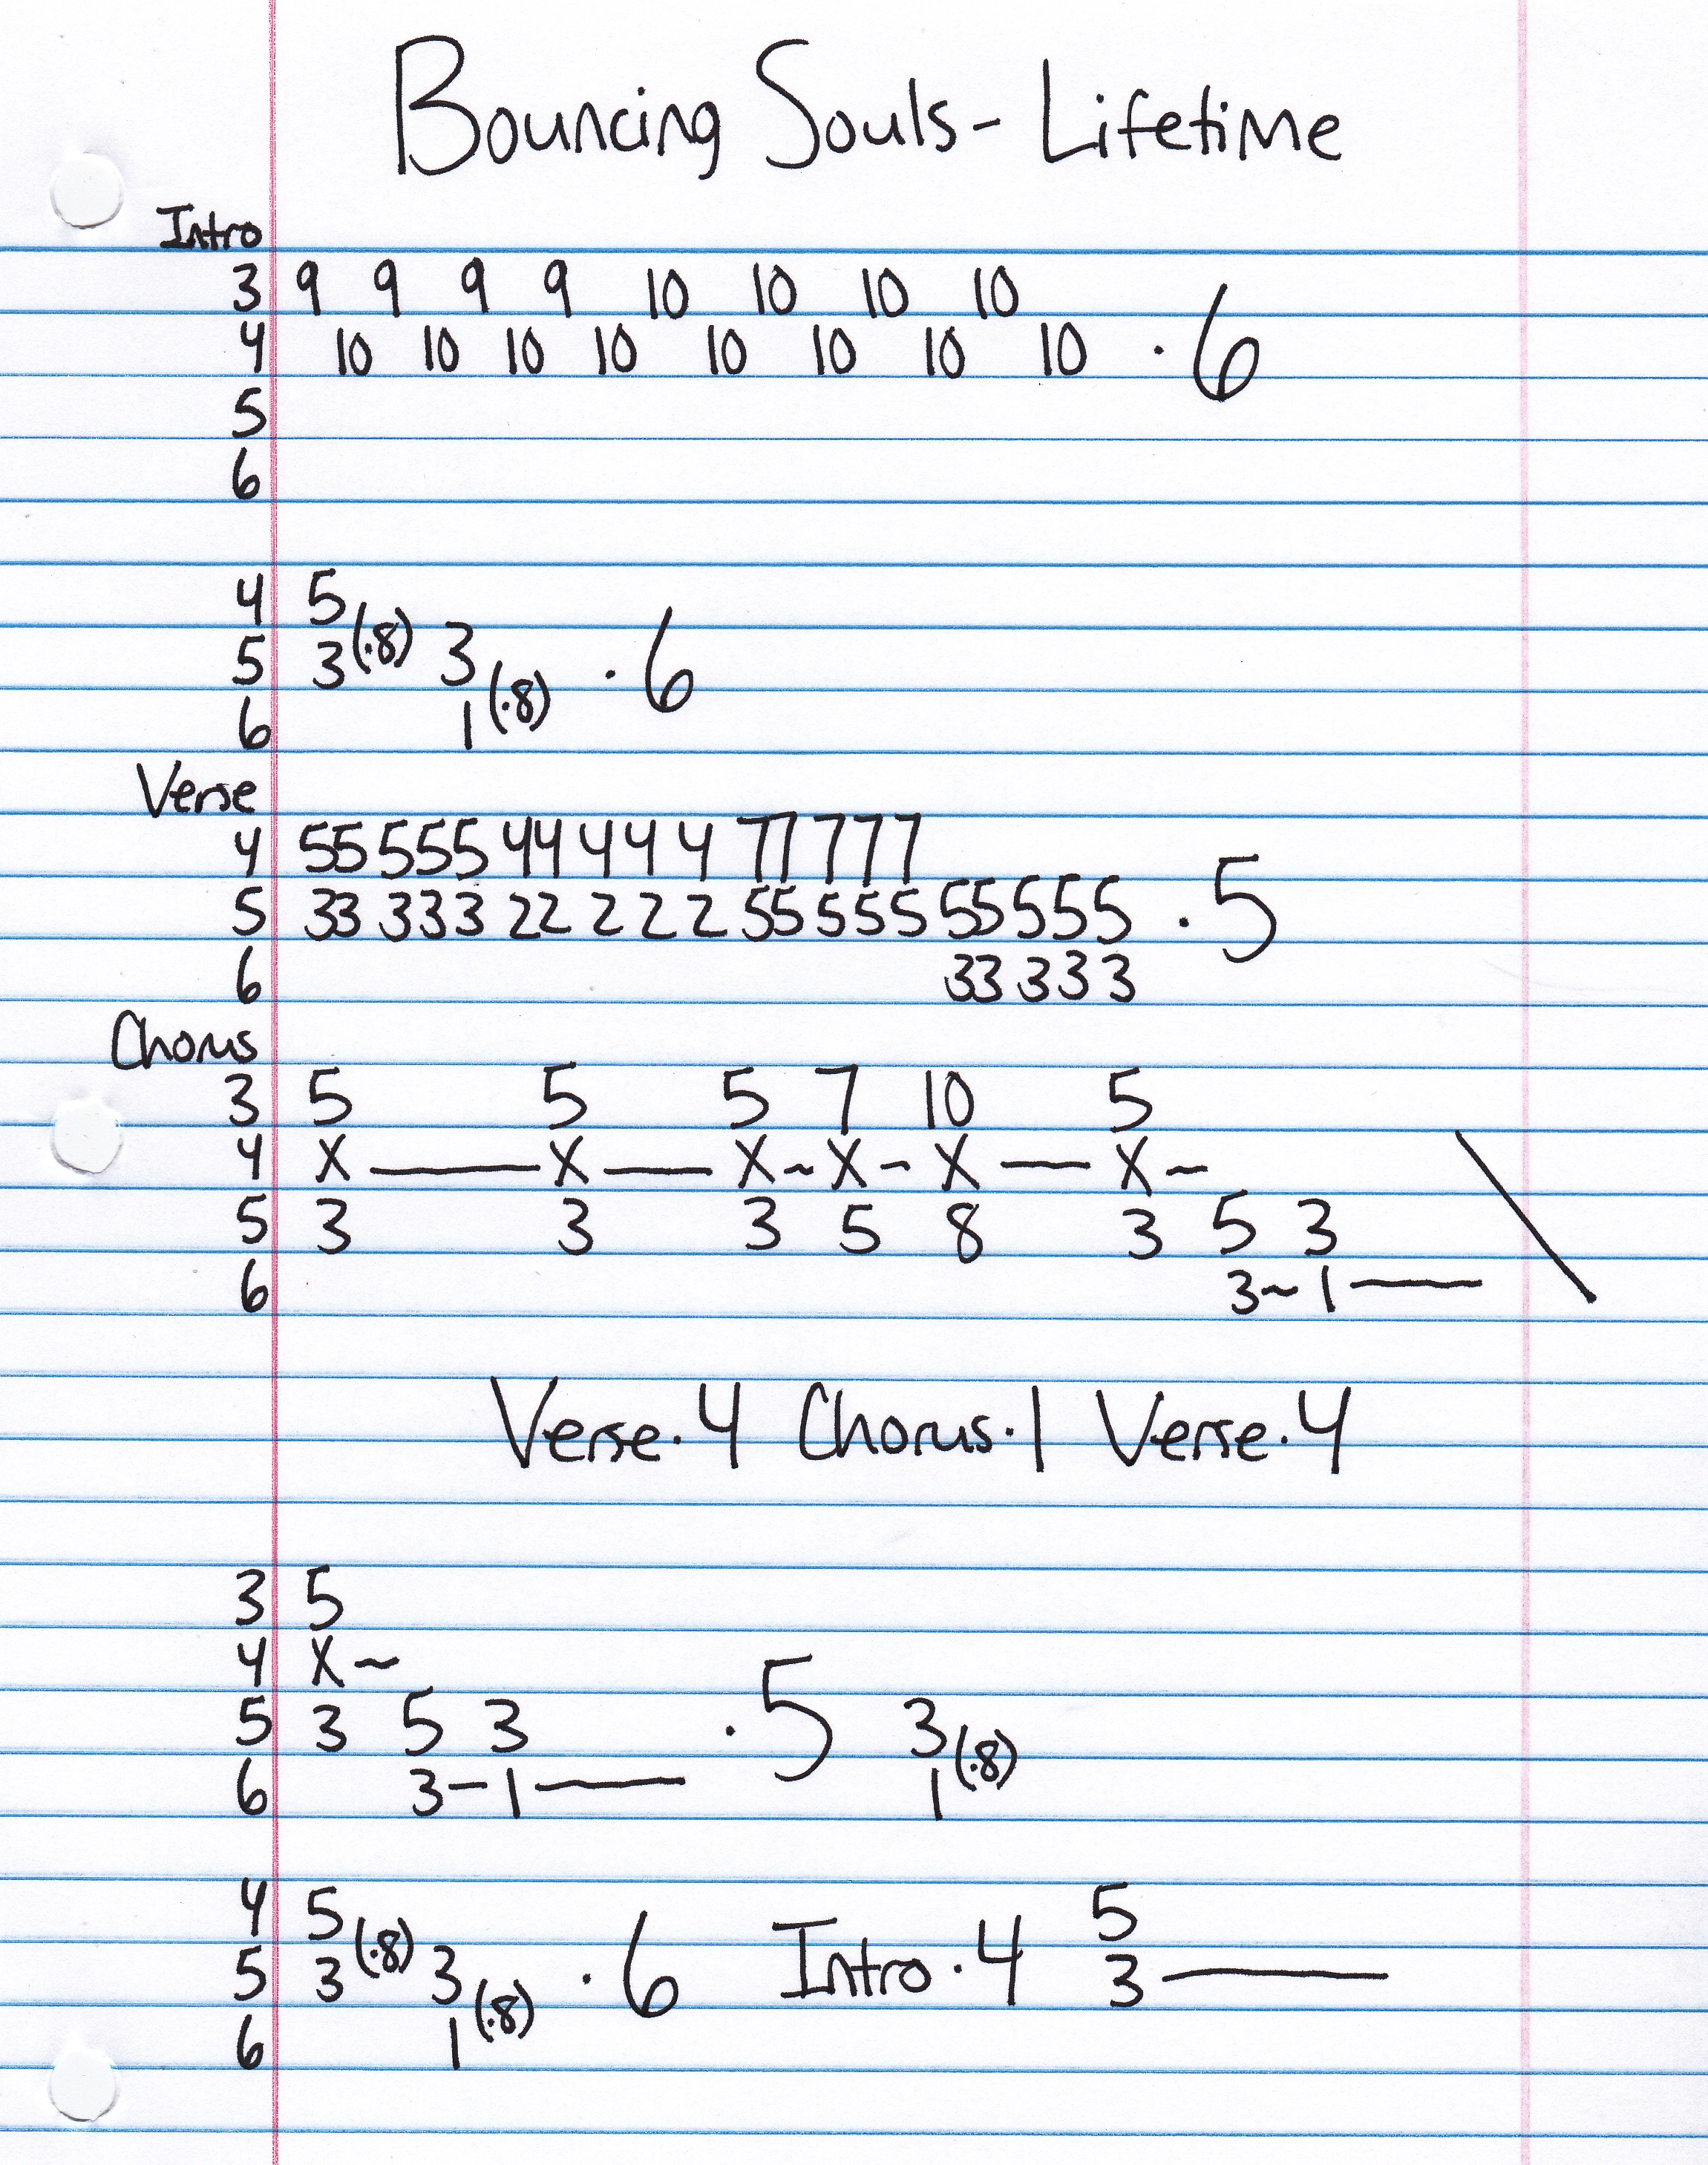 Bouncing Souls - Lifetime
Intro
3 9 9 9 9 10 10 10 10
4 10 10 10 10 10 10 10 10 · 6
5
6
4 5
5 3 (·8) 3 · 6
6 1 (·8)
Verse
4 55 555 44 4 4 4 77 777
5 33 333 22 2 2 2 55 555 55555 · 5
6 33 333
Chorus
3 5 5 5 7 10 5
4 X — X — X ~ X ~ X — X ~
5 3 3 3 5 8 3 5 3
6 3 ~ 1 — \
Verse · 4 Chorus · 1 Verse · 4
3 5
4 X ~
5 3 5 3 · 5 3
6 3 - 1 — 1 (·8)
4 5 5
5 3 (·8) 3 · 6 Intro · 4 3 —
6 1 (·8)